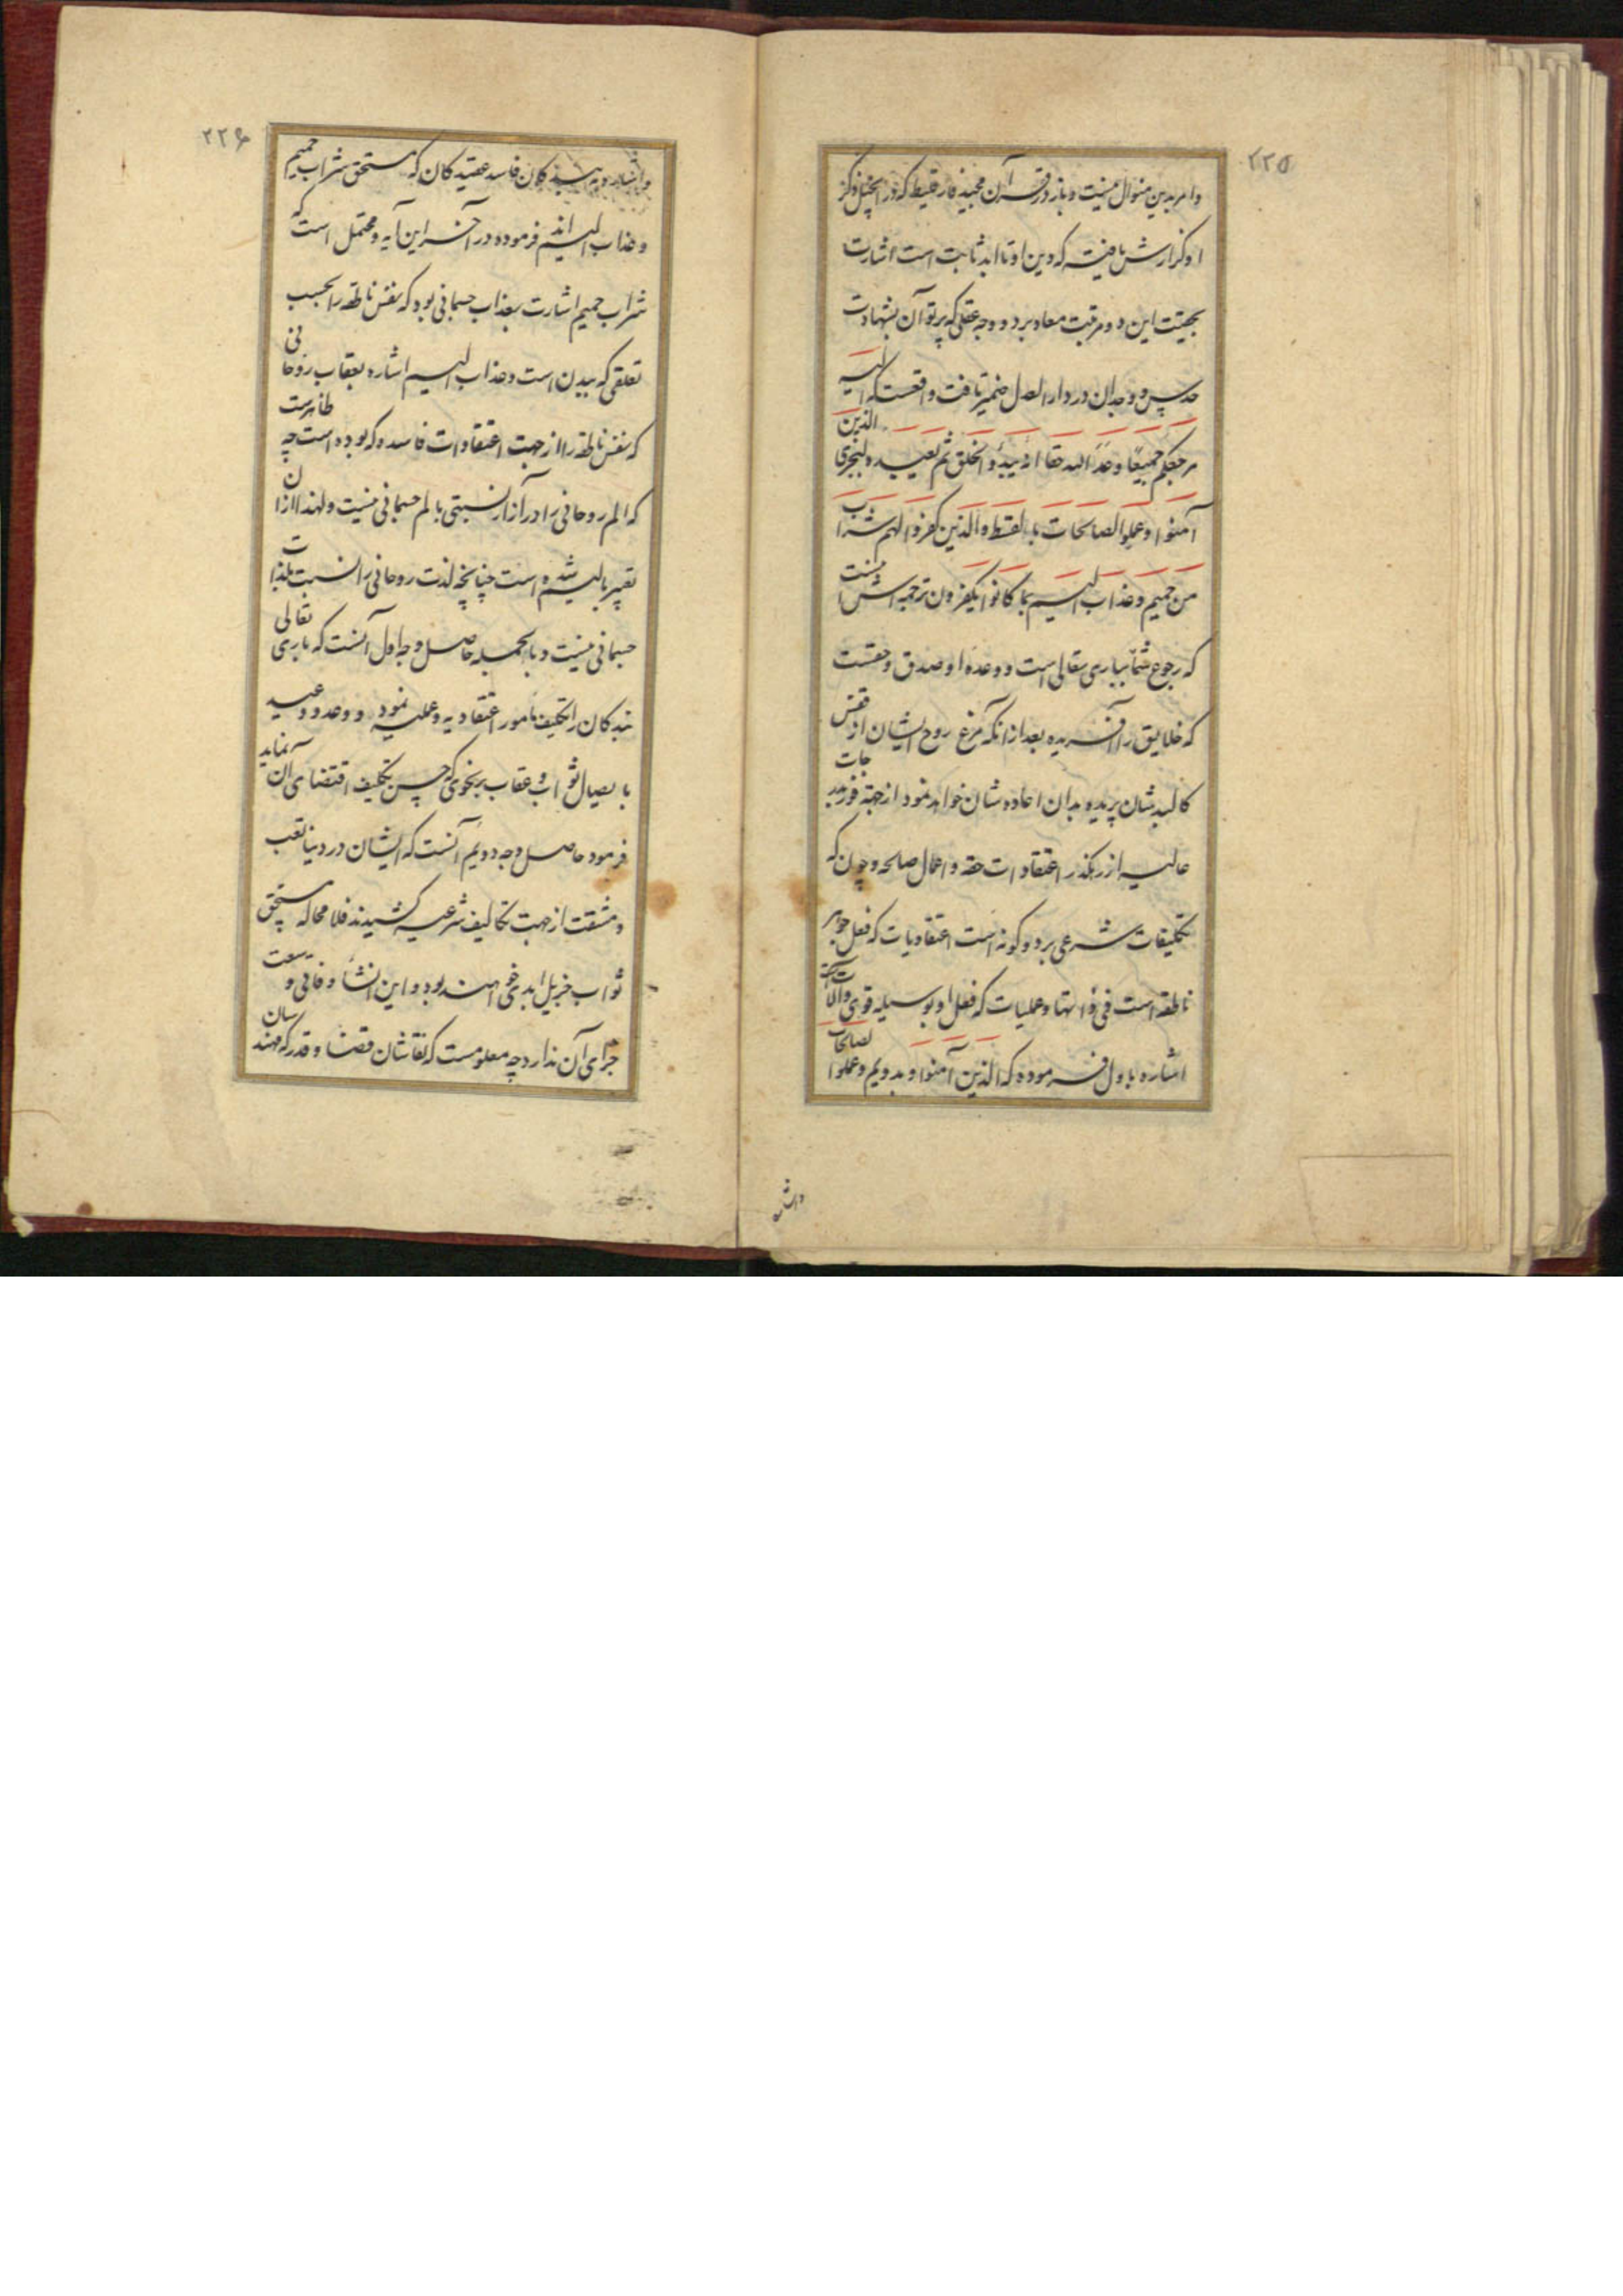 ۲۲۵
وامر بدین منوال نیست و باز در قرآن مجید فارقلیط که در انجیل ذکر
او گزارش یافته که دین او تا ابد ثابت است اشارت
بحیثیت این دو مرتبت معاد برد و وجه عقلی که پرتو آن بشهادت
حدس و وجدان در دار العدل ضمیر تافت واقعست که الیه
مرجعکم جمیعًا وعد الله حقا انه یبدؤ الخلق ثم یعیده لیجزی الذین
آمنوا و عملوا الصالحات بالقسط والذین کفروا لهم شراب
من حمیم و عذاب الیم بما کانوا یکفرون ترجمه اش اینست
که رجوع شما بباری تعالی است و وعده او صدق و حقست
که خلایق را آفریده بعد از آنکه مرغ روح ایشان از قفس
کالبدشان پریده بدان اعاده شان خواهد نمود از جهة فوز بدرجات
عالیه از رهگذر اعتقادات حقه و اعمال صالحه و چون که
تکلیفات شرعی بر دو گونه است اعتقادیات که فعل جوهر
ناطقه است فی ذاتها و عملیات که فعل او بوسیله قوی و الات
اشاره باول فرموده که الذین آمنوا و بدویم و عملوا الصالحات
و اشاره
۲۲۶
و اشاره به بندگان فاسد عقیدگان که مستحق شراب حمیم
و عذاب الیم اند فرموده در آخر این آیه و محتمل است که
شراب حمیم اشارت بعذاب جسمانی بود که نفس ناطقه را بحسب
تعلقی که ببدن است و عذاب الیم اشاره بعقاب روحانی
که نفس ناطقه را از جهت اعتقادات فاسده که بوده است چه ظاهرست
که الم روحانی را در آزار نسبتی بالم جسمانی نیست و لهذا از ان
تعبیر بالیم شده است چنانچه لذت روحانی را نسبت بلذات
جسمانی نیست و بالجمله حاصل وجه اول آنست که باری تعالی
بندگان را تکلیف بامور اعتقادیه و عملیه نمود و وعد و وعید
بایصال ثواب و عقاب بر نحوی که حسن تکلیف اقتضای ان نماید
فرمود حاصل وجه دویم آنست که ایشان در دنیا تعب
و مشقت از جهت تکالیف شرعیه کشیدند فلا محاله مستحق
ثواب جزیل ابدی خواهند بود و این نشأ فانی وسعت
جزای آن ندارد چه معلومست که نقاشان قضا و قدر که مهندسان